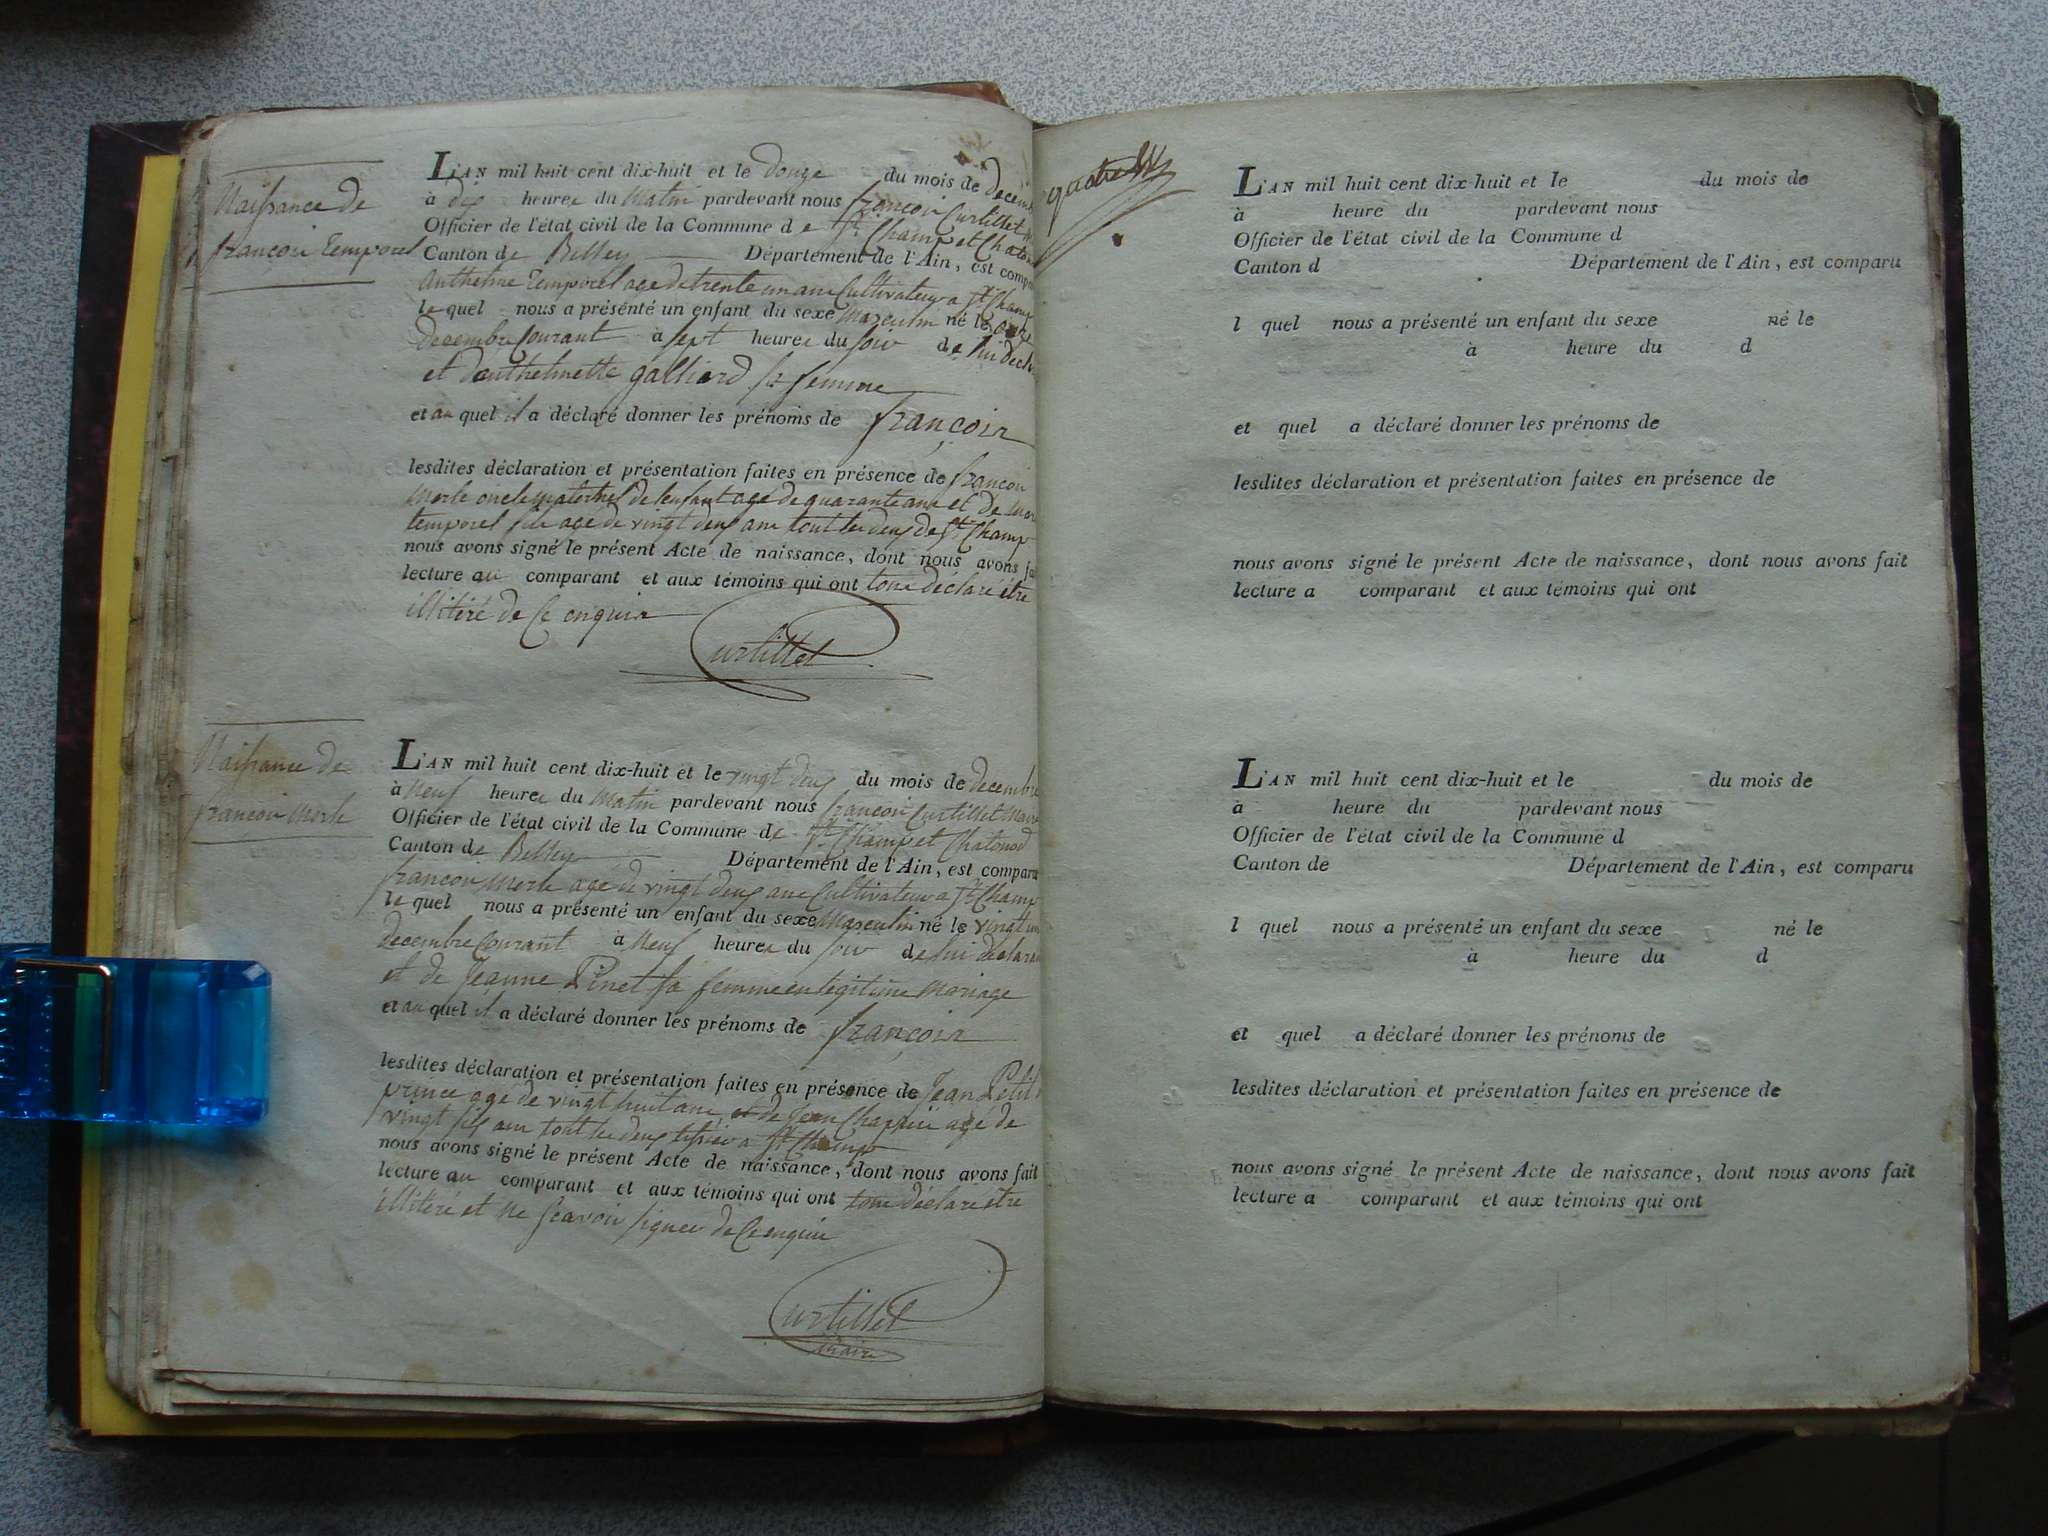 Naissance de
françois Temporel
L'AN mil huit cent dix-huit et le douze du mois de décem
à dix heures du Matin pardevant nous françois Curtillet
Officier de l'état civil de la Commune de St Champ et Chaton
Canton de Belley Département de l'Ain, est comparu
Anthelme Temporel age de trente un ans Cultivateur a St Champ
le quel nous a présénté un enfant du sexe Masculin né le onze
decembre Courant à sept heures du soir de lui décla
et danthelmette galliard sa femme
et au quel il a déclaré donner les prénoms de françois
lesdites déclaration et présentation faites en présence de françois
Merle oncle maternel de lenfant age de quarante ans et de
temporel fils age de vingt deux ans tout les deux de St Champ
nous avons signé le présent Acte de naissance, dont nous avons fai
lecture au comparant et aux témoins qui ont tous déclaré être
illitéré de Ce enquis
Curtillet
Naissance de
francois Merle
L'AN mil huit cent dix-huit et le vingt deux du mois de decembre
à Neuf heures du Matin pardevant nous françois Curtillet Maire
Officier de l'état civil de la Commune de St Champ et Chatonod
Canton de Belley Département de l'Ain, est comparu
francois Merle agé de vingt deux ans Cultivateur a St Champ
le quel nous a présenté un enfant du sexe Masculin né le vingt un
decembre Courant à Neuf heures du soir de lui déclara
et de Jeanne Pinet sa femme en legitime Mariage
et au quel il a déclaré donner les prénoms de françois
lesdites déclaration et présentation faites en présence de Jean Petit
prince agé de vingt huit ans et de Jean Chappuis agé de
vingt six ans tout les deux a St Champ
nous avons signé le présent Acte de naissance, dont nous avons fait
lecture au comparant et aux témoins qui ont tous déclaré etre
illitéré et ne scavoir signer de Ce enquis
Curtillet
Maire
L'AN mil huit cent dix-huit et le du mois de
à heure du pardevant nous
Officier de l'état civil de la Commune d
Canton d Département de l'Ain, est comparu
l quel nous a présenté un enfant du sexe né le
à heure du d
et quel a déclaré donner les prénoms de
lesdites déclaration et présentation faites en présence de
nous avons signé le présent Acte de naissance, dont nous avons fait
lecture a comparant et aux témoins qui ont
L'AN mil huit cent dix-huit et le du mois de
à heure du pardevant nous
Officier de l'état civil de la Commune d
Canton de Département de l'Ain, est comparu
l quel nous a présenté un enfant du sexe né le
à heure du d
et quel a déclaré donner les prénoms de
lesdites déclaration et présentation faites en présence de
nous avons signé le présent Acte de naissance, dont nous avons fait
lecture a comparant et aux témoins qui ont